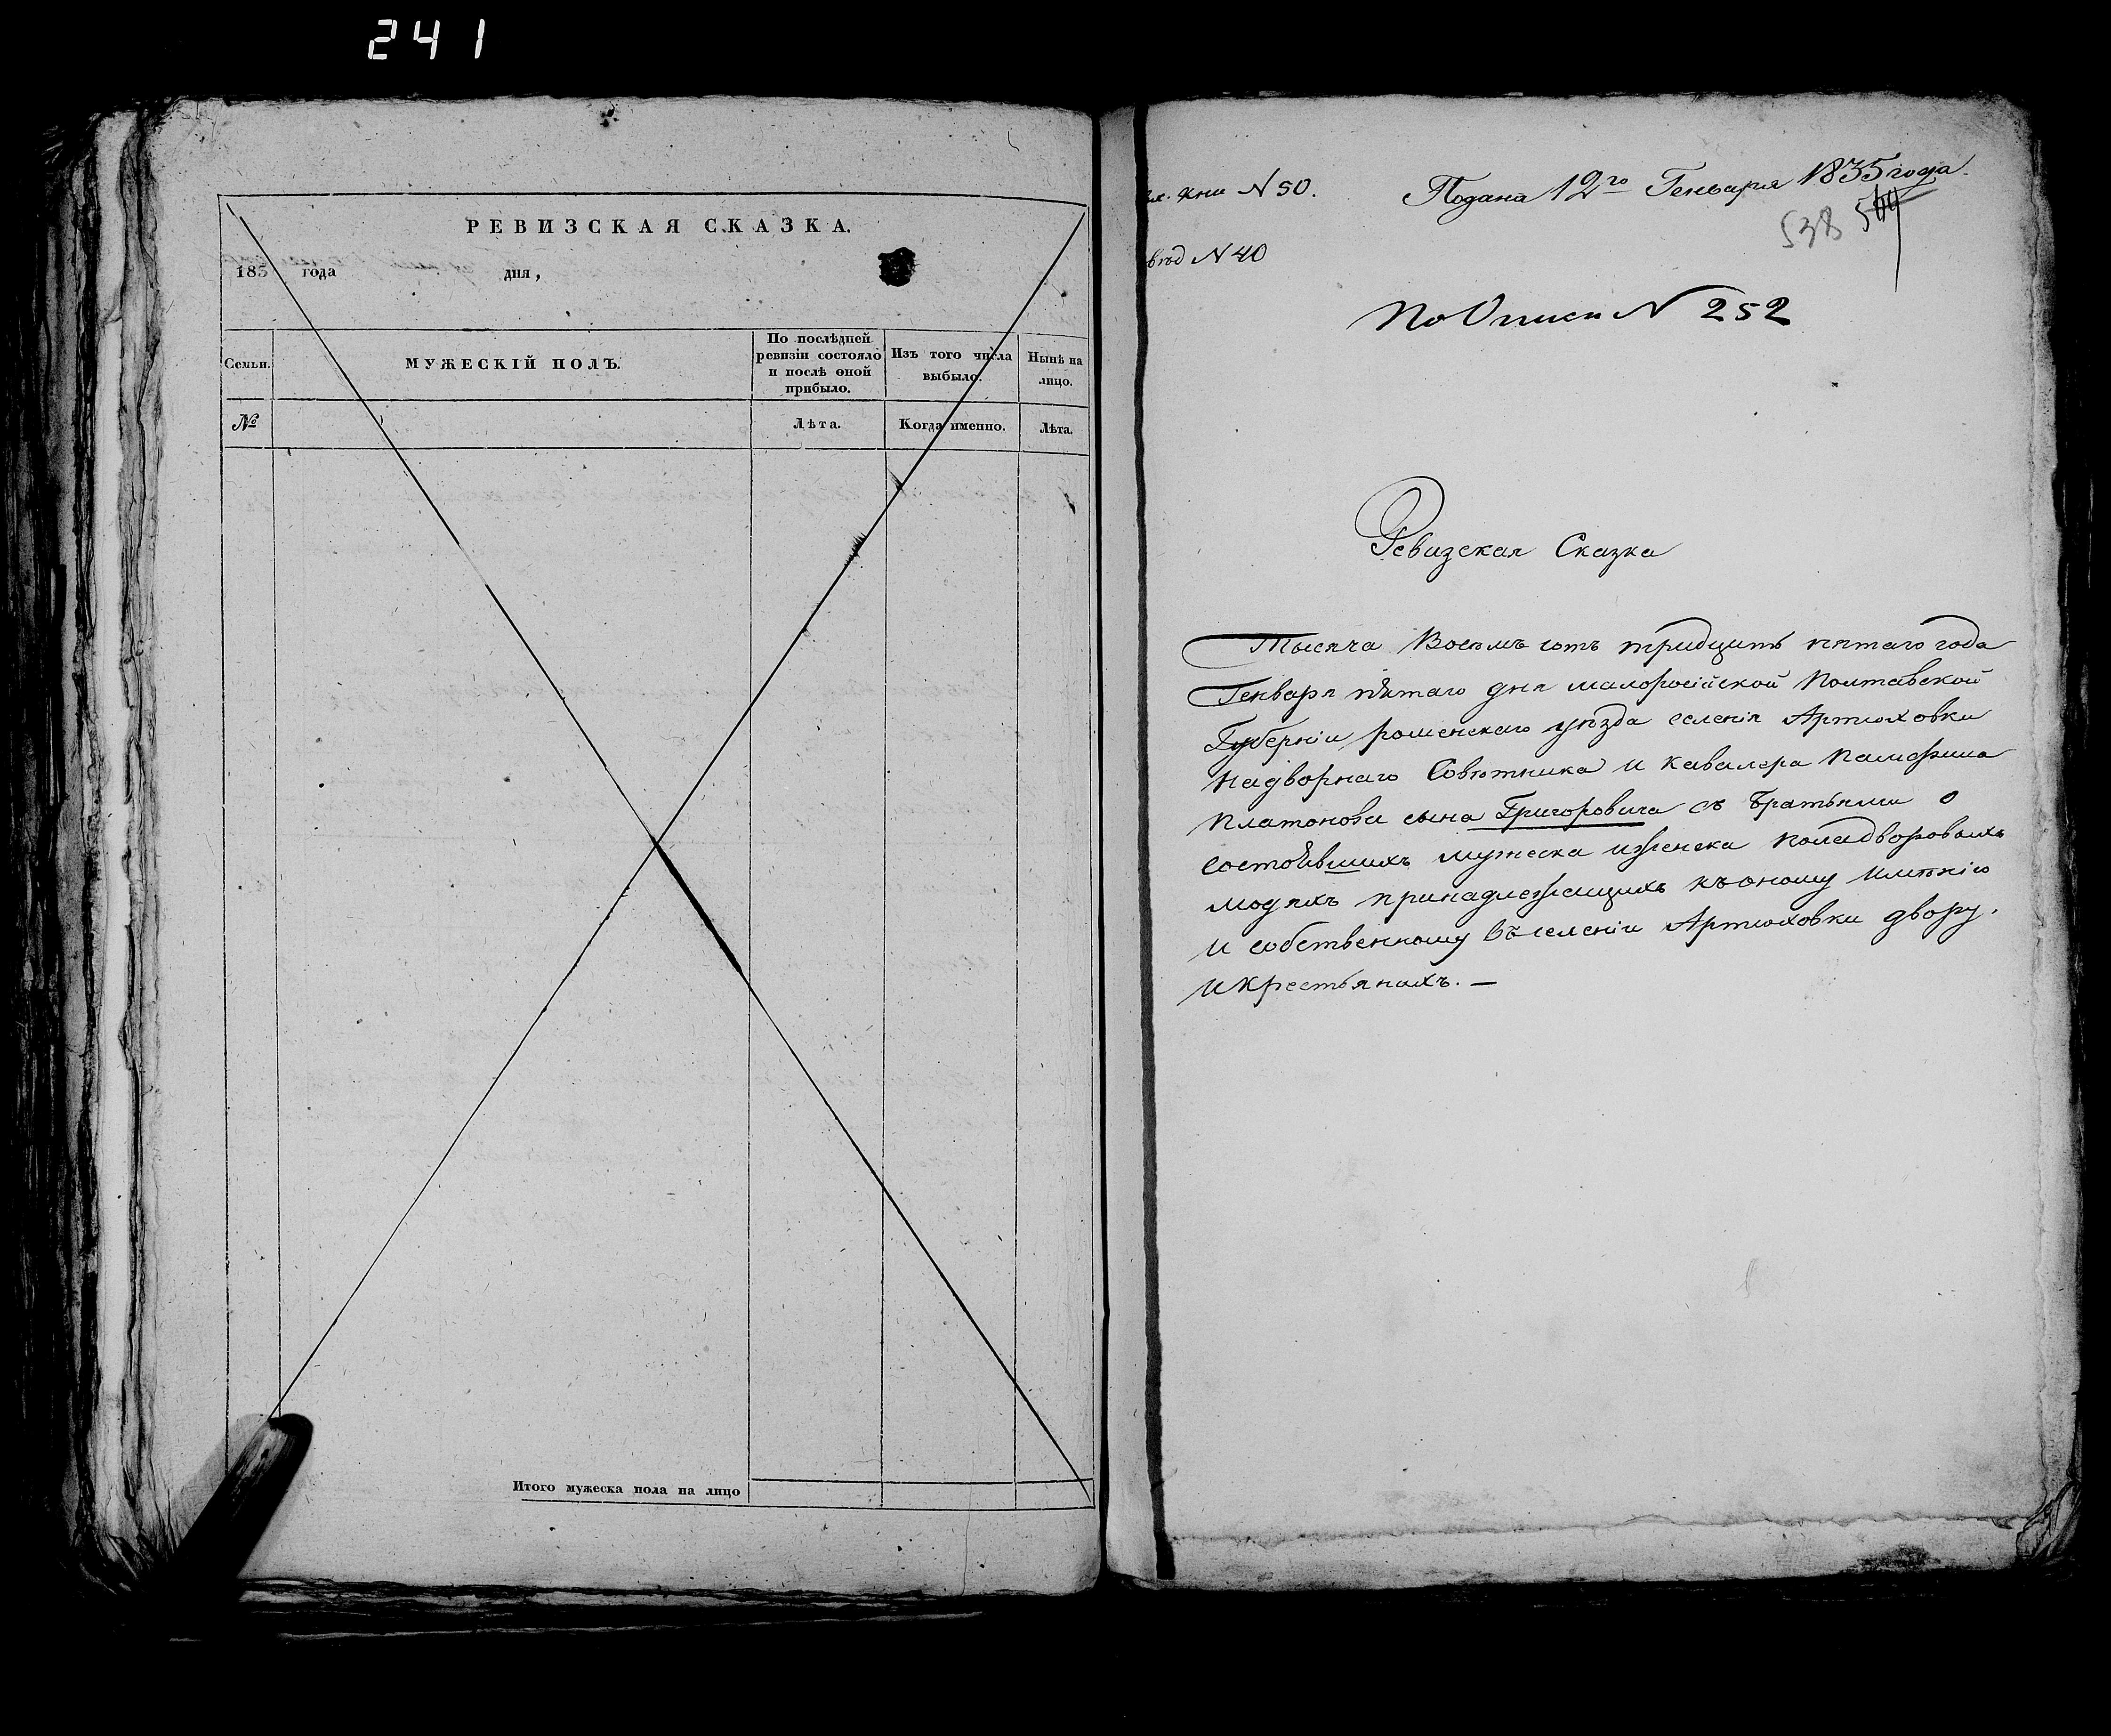 241
РЕВИЗСКАЯ СКАЗКА.
185 года дня,
Семьи.
МУЖЕСКІЙ ПОЛЪ.
По послѣдней ревизіи состояло и послѣ оной прибыло.
Изъ того числа выбыло.
Нынѣ на лицо.
№
Лѣта.
Когда именно.
Лѣта.
Итого мужеска пола на лицо
кни N 50.
Подана 12го Генваря 1835 года.
538
N 40
По Описи N 252
Ревизская Сказка
Тысяча Восемъ сотъ тридцать пятаго года
Генваря пятаго дня малоросійской Полтавской
Губерніи роменскаго уѣзда селенія Артюховки
Надворнаго Совѣтника и кавалера Памфила
Платонова сына Григоровича съ Братьями о
состоявшихъ мужеска и женска пола дворовыхъ
людяхъ принадлежащихъ къ оному имѣнію
и собственному въ селеніи Артюховки двору,
и крестьянахъ. —